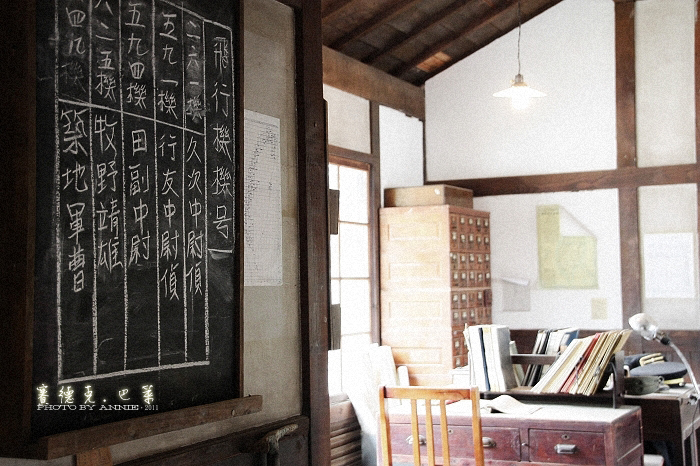 飛行機機号
二六一機 久次中尉偵
五九一機 行友中尉偵
五九四機 田副中尉
六二五機 牧野靖雄
四九機 築地軍曹
賽德克.巴萊
PHOTO BY ANNIE·2011